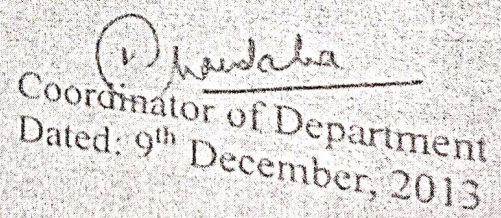 Coordinator of Department
Dated: 9th December, 2013